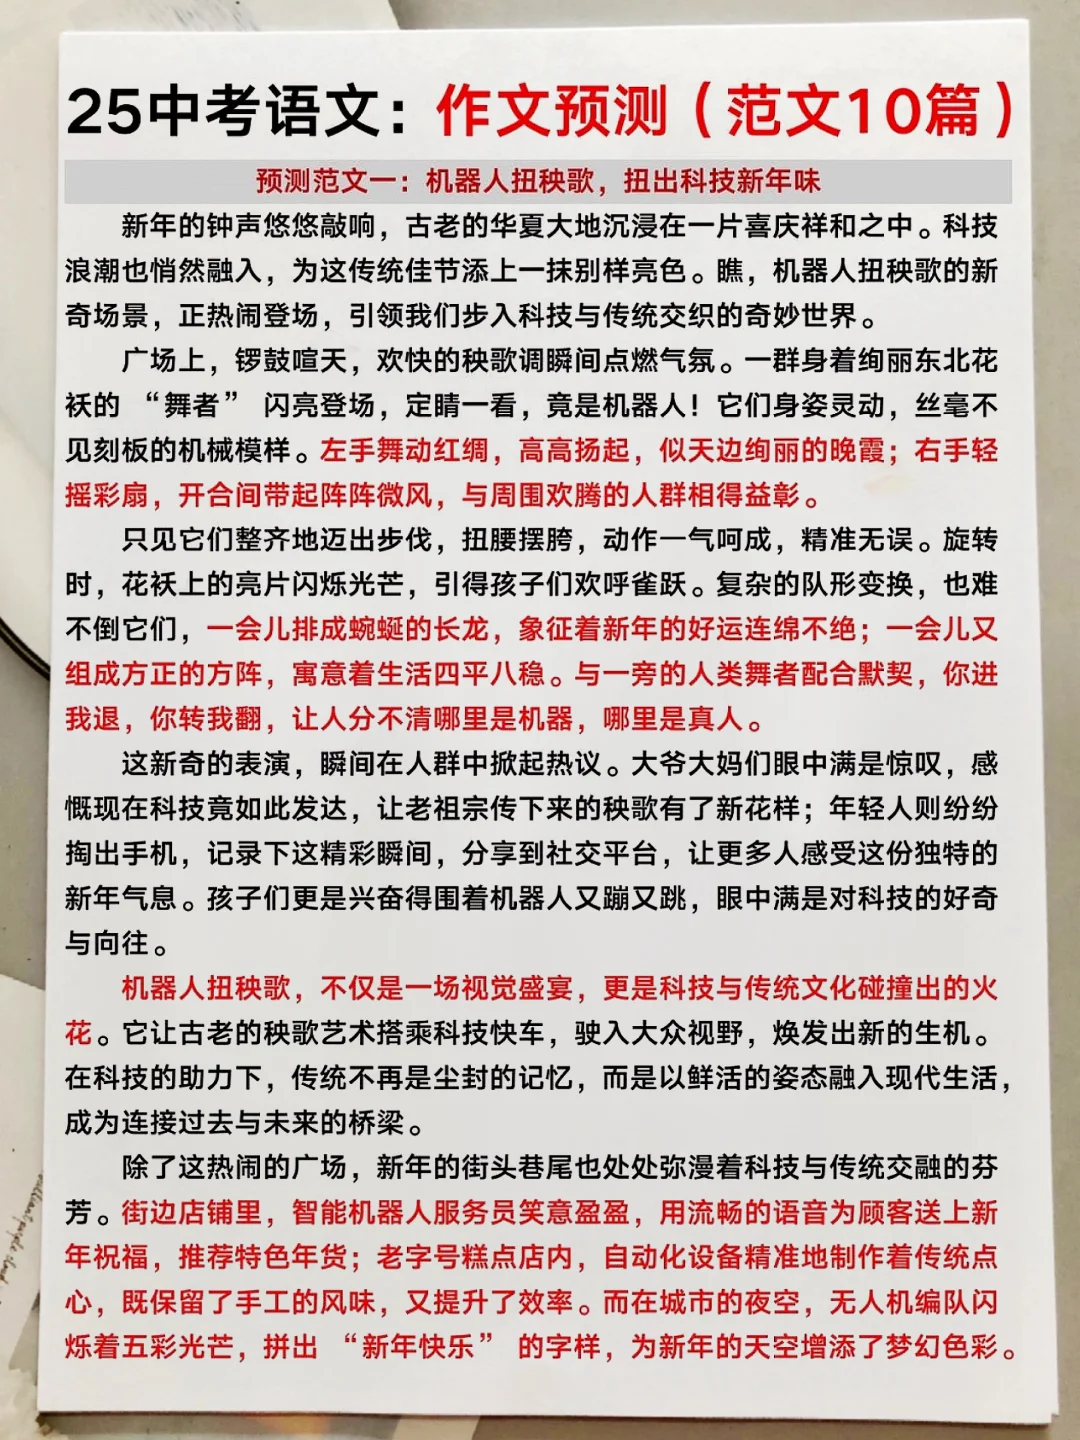 25中考语文：作文预测（范文10篇）
预测范文一：机器人扭秧歌，扭出科技新年味
新年的钟声悠悠敲响，古老的华夏大地沉浸在一片喜庆祥和之中。科技
浪潮也悄然融入，为这传统佳节添上一抹别样亮色。瞧，机器人扭秧歌的新
奇场景，正热闹登场，引领我们步入科技与传统交织的奇妙世界。
广场上，锣鼓喧天，欢快的秧歌调瞬间点燃气氛。一群身着绚丽东北花
袄的“舞者”闪亮登场，定睛一看，竟是机器人！它们身姿灵动，丝毫不
见刻板的机械模样。左手舞动红绸，高高扬起，似天边绚丽的晚霞；右手轻
摇彩扇，开合间带起阵阵微风，与周围欢腾的人群相得益彰。
只见它们整齐地迈出步伐，扭腰摆胯，动作一气呵成，精准无误。旋转
时，花袄上的亮片闪烁光芒，引得孩子们欢呼雀跃。复杂的队形变换，也难
不倒它们，一会儿排成蜿蜒的长龙，象征着新年的好运连绵不绝；一会儿又
组成方正的方阵，寓意着生活四平八稳。与一旁的人类舞者配合默契，你进
我退，你转我翻，让人分不清哪里是机器，哪里是真人。
这新奇的表演，瞬间在人群中掀起热议。大爷大妈们眼中满是惊叹，感
慨现在科技竟如此发达，让老祖宗传下来的秧歌有了新花样；年轻人则纷纷
掏出手机，记录下这精彩瞬间，分享到社交平台，让更多人感受这份独特的
新年气息。孩子们更是兴奋得围着机器人又蹦又跳，眼中满是对科技的好奇
与向往。
机器人扭秧歌，不仅是一场视觉盛宴，更是科技与传统文化碰撞出的火
花。它让古老的秧歌艺术搭乘科技快车，驶入大众视野，焕发出新的生机。
在科技的助力下，传统不再是尘封的记忆，而是以鲜活的姿态融入现代生活，
成为连接过去与未来的桥梁。
除了这热闹的广场，新年的街头巷尾也处处弥漫着科技与传统交融的芬
芳。街边店铺里，智能机器人服务员笑意盈盈，用流畅的语音为顾客送上新
年祝福，推荐特色年货；老字号糕点店内，自动化设备精准地制作着传统点
心，既保留了手工的风味，又提升了效率。而在城市的夜空，无人机编队闪
烁着五彩光芒，拼出“新年快乐”的字样，为新年的天空增添了梦幻色彩。